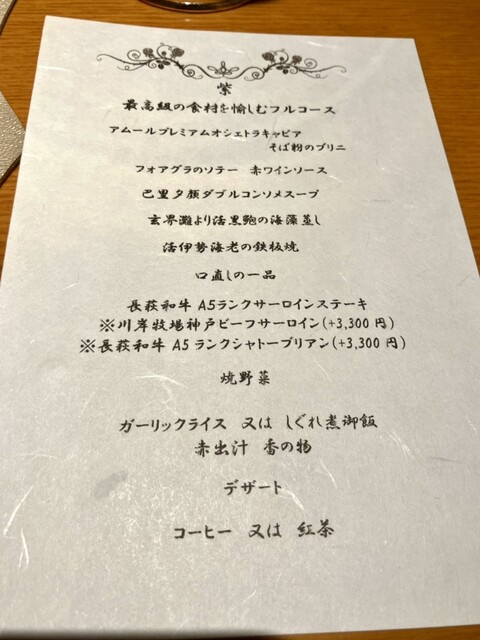 紫
最高級の食材を愉しむフルコース
アムールプレミアムオシェトラキャビア
そば粉のブリニ
フォアグラのソテー 赤ワインソース
巴里夕顔ダブルコンソメスープ
玄界灘より活黒鮑の海藻蒸し
活伊勢海老の鉄板焼
口直しの一品
長萩和牛 A5ランクサーロインステーキ
※川岸牧場神戸ビーフサーロイン(+3,300 円)
※長萩和牛 A5 ランクシャトーブリアン(+3,300 円)
焼野菜
ガーリックライス 又は しぐれ煮御飯
赤出汁 香の物
デザート
コーヒー 又は 紅茶